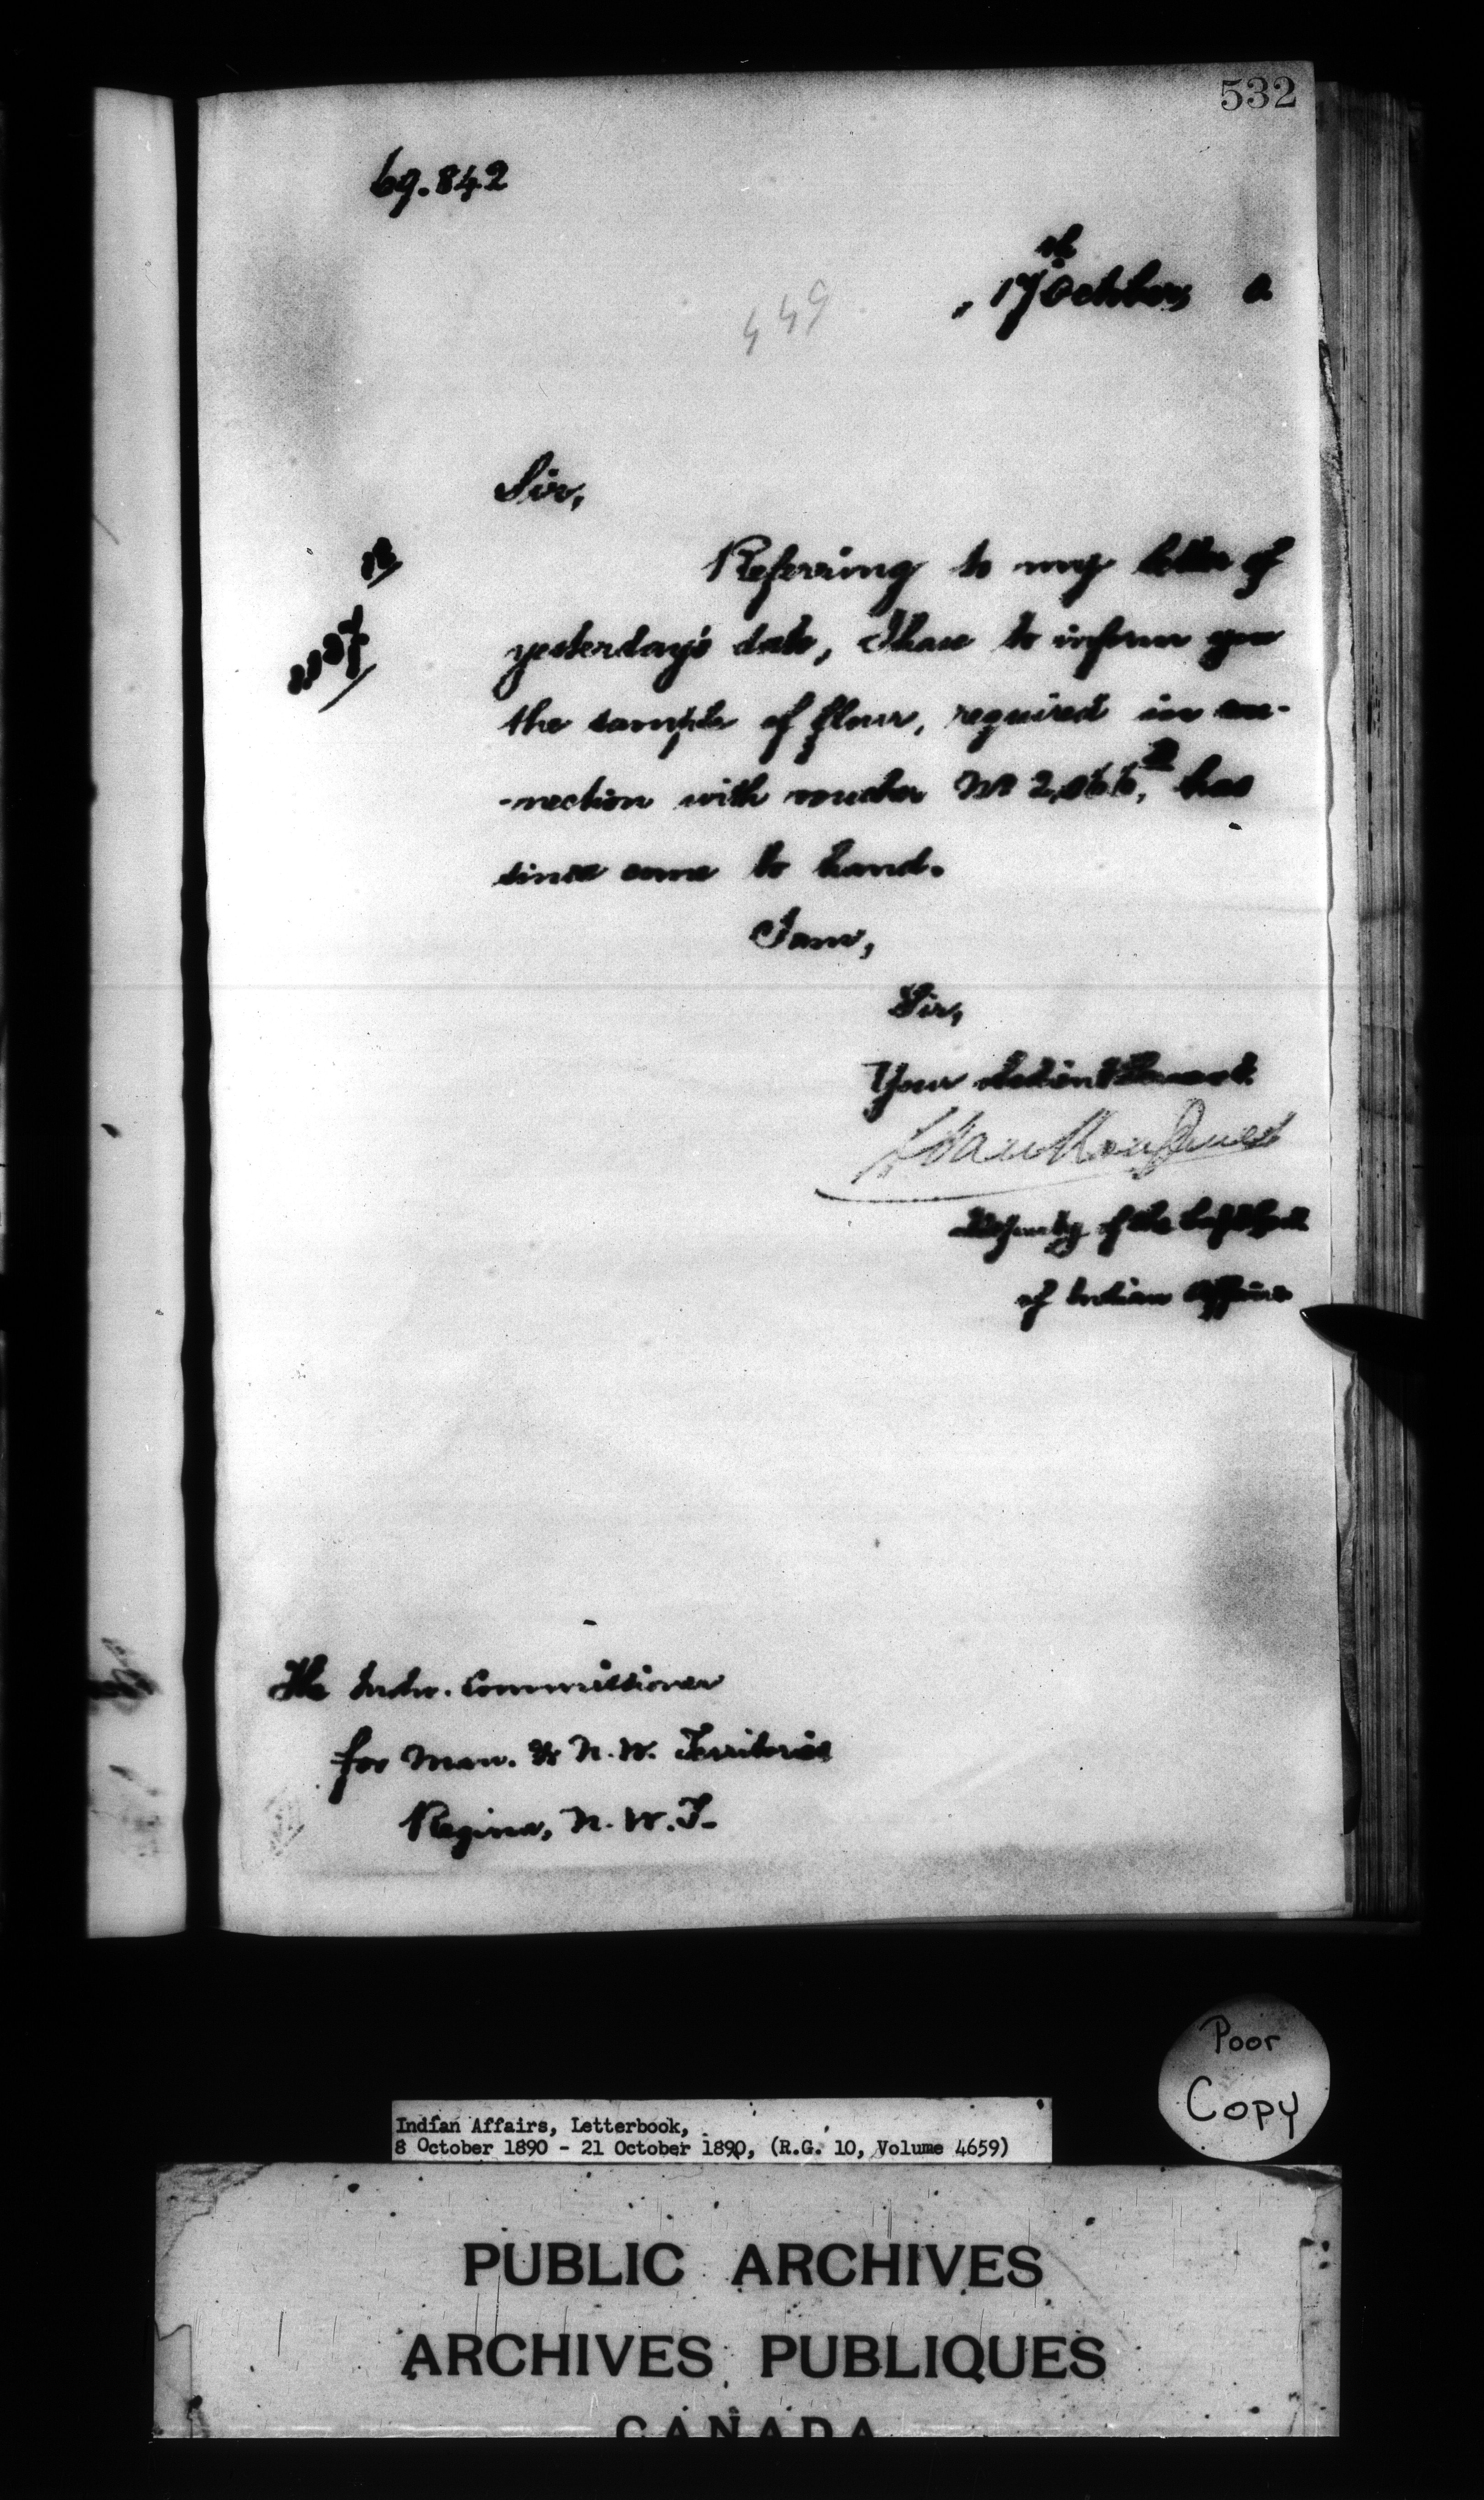 532
69.842
17th October, 0
449
Sir,
Referring to my letter of
yesterday's date, I have to inform you
the sample of flour, required in con-
-nection with voucher No 2,066, has
since come to hand.
I am,
Sir,
Your obedient Servant.
L Vankoughnet
Deputy of the Supt Genl
of Indian Affairs
The Indn. Commissioner
for Man. & N.W. Territories
Regina, N.W.T.
Poor
Copy
Indian Affairs, Letterbook,
8 October 1890 - 21 October 1890, (R.G. 10, Volume 4659)
PUBLIC ARCHIVES
ARCHIVES PUBLIQUES
CANADA